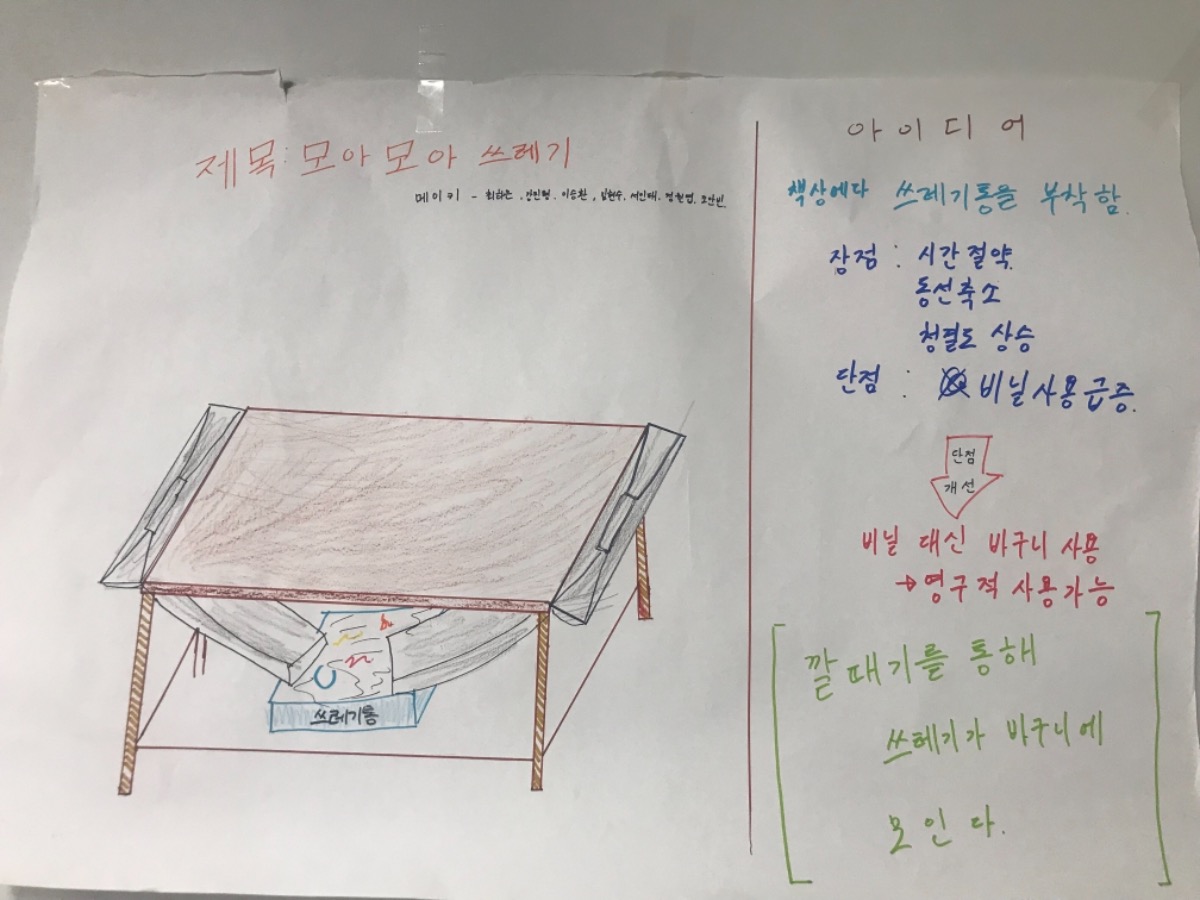 제목: 모아모아 쓰레기
메이키 - 최하은, 강민형, 이승환, 임현수, 서인태,
쓰레기통
아이디어
책상에다 쓰레기통을 부착함.
장점 : 시간절약
동선축소
청결도 상승
단점 : 비닐사용급증.
단점
개선
비닐 대신 바구니 사용
→영구적사용가능
깔때기를 통해
쓰레기가 바구니에
모인다.